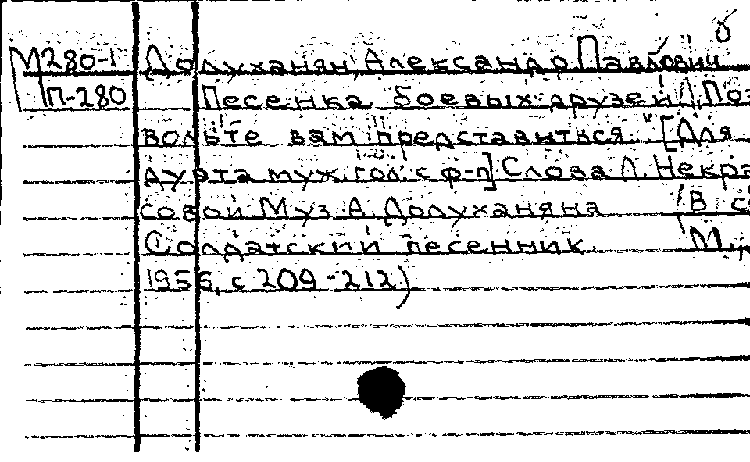 М280-1 Долуханян, Александр Павлович
П-280 Песенка боевых друзей. "Поз-
вольте вам представиться." [Для
дуэта муж. гол. с ф-п] Слова Л. Некра-
совой Муз. А. Долуханяна (В сб
Солдатский песенник. М.,
1956, с 209-212)